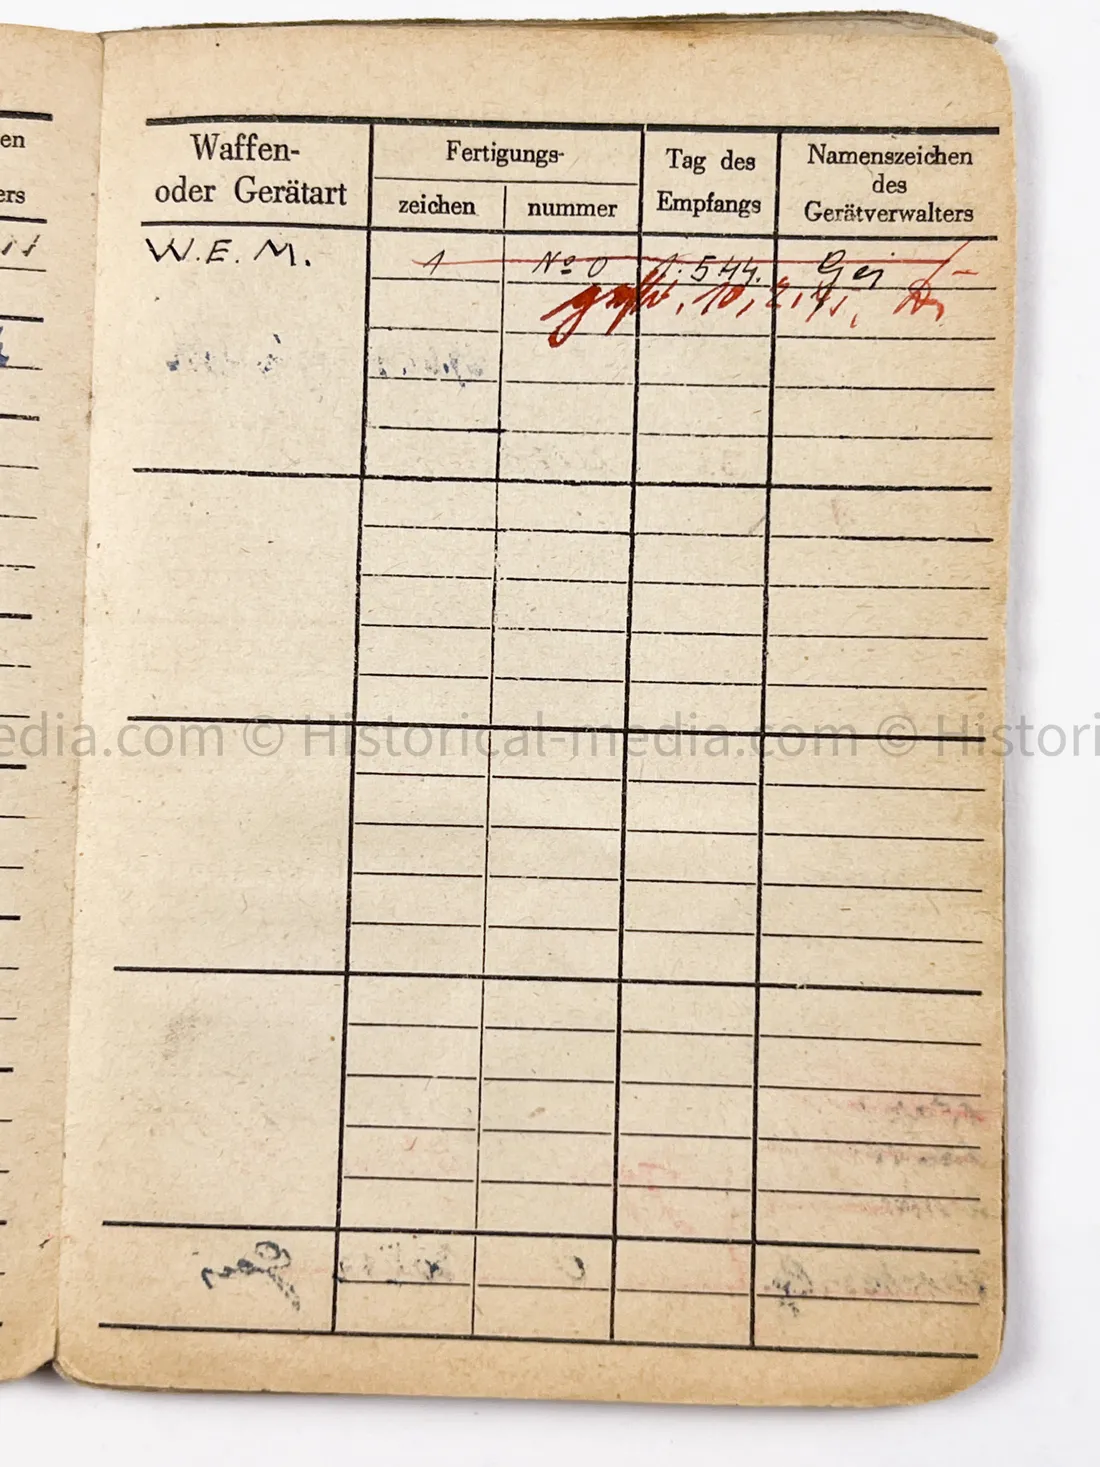 en
ers
Waffen-
oder Gerätart
Fertigungs-
zeichen
nummer
Tag des
Empfangs
Namenszeichen
des
Gerätverwalters
W.E.M. 1 No 0 1.5.44. Gej
10.2.45.
edia.com © Historical-media.com © Histori